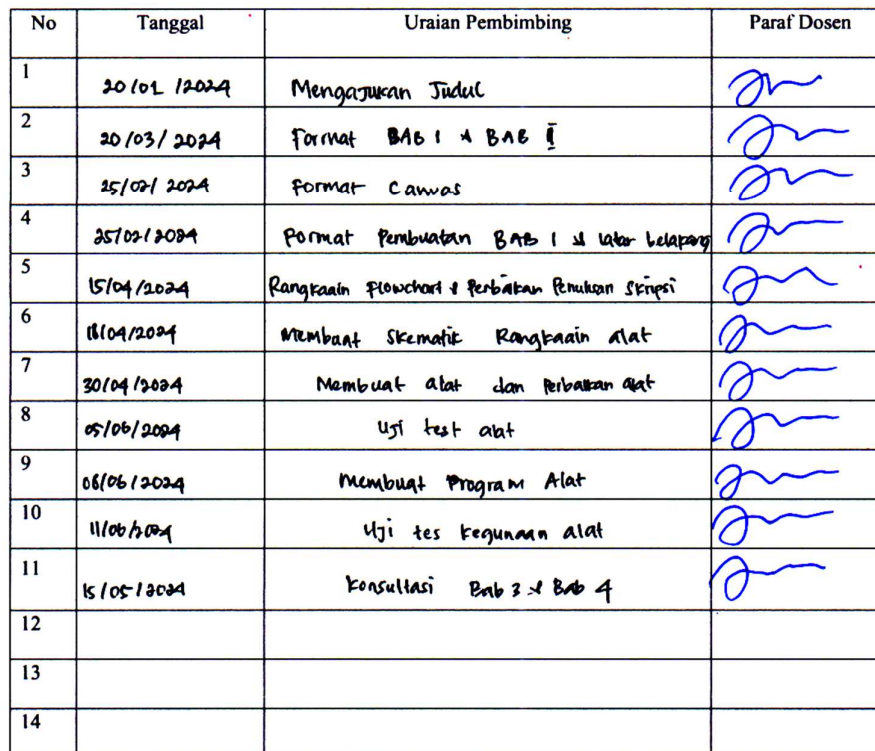 No Tanggal Uraian Pembimbing Paraf Dosen
1 20/01/2024 Mengajukan Judul
2 20/03/2024 Format BAB I & BAB II
3 25/02/2024 Format Canvas
4 25/02/2024 Format Pembuatan BAB 1 & latar belakang
5 15/04/2024 Rangkaain Flowchart & Perbaikan Penulisan Skripsi
6 18/04/2024 Membuat Skematik Rangkaain alat
7 30/04/2024 Membuat alat dan Perbaikan alat
8 05/06/2024 Uji test alat
9 06/06/2024 Membuat Program Alat
10 11/06/2024 Uji tes kegunaan alat
11 15/05/2024 Konsultasi Bab 3 & Bab 4
12
13
14